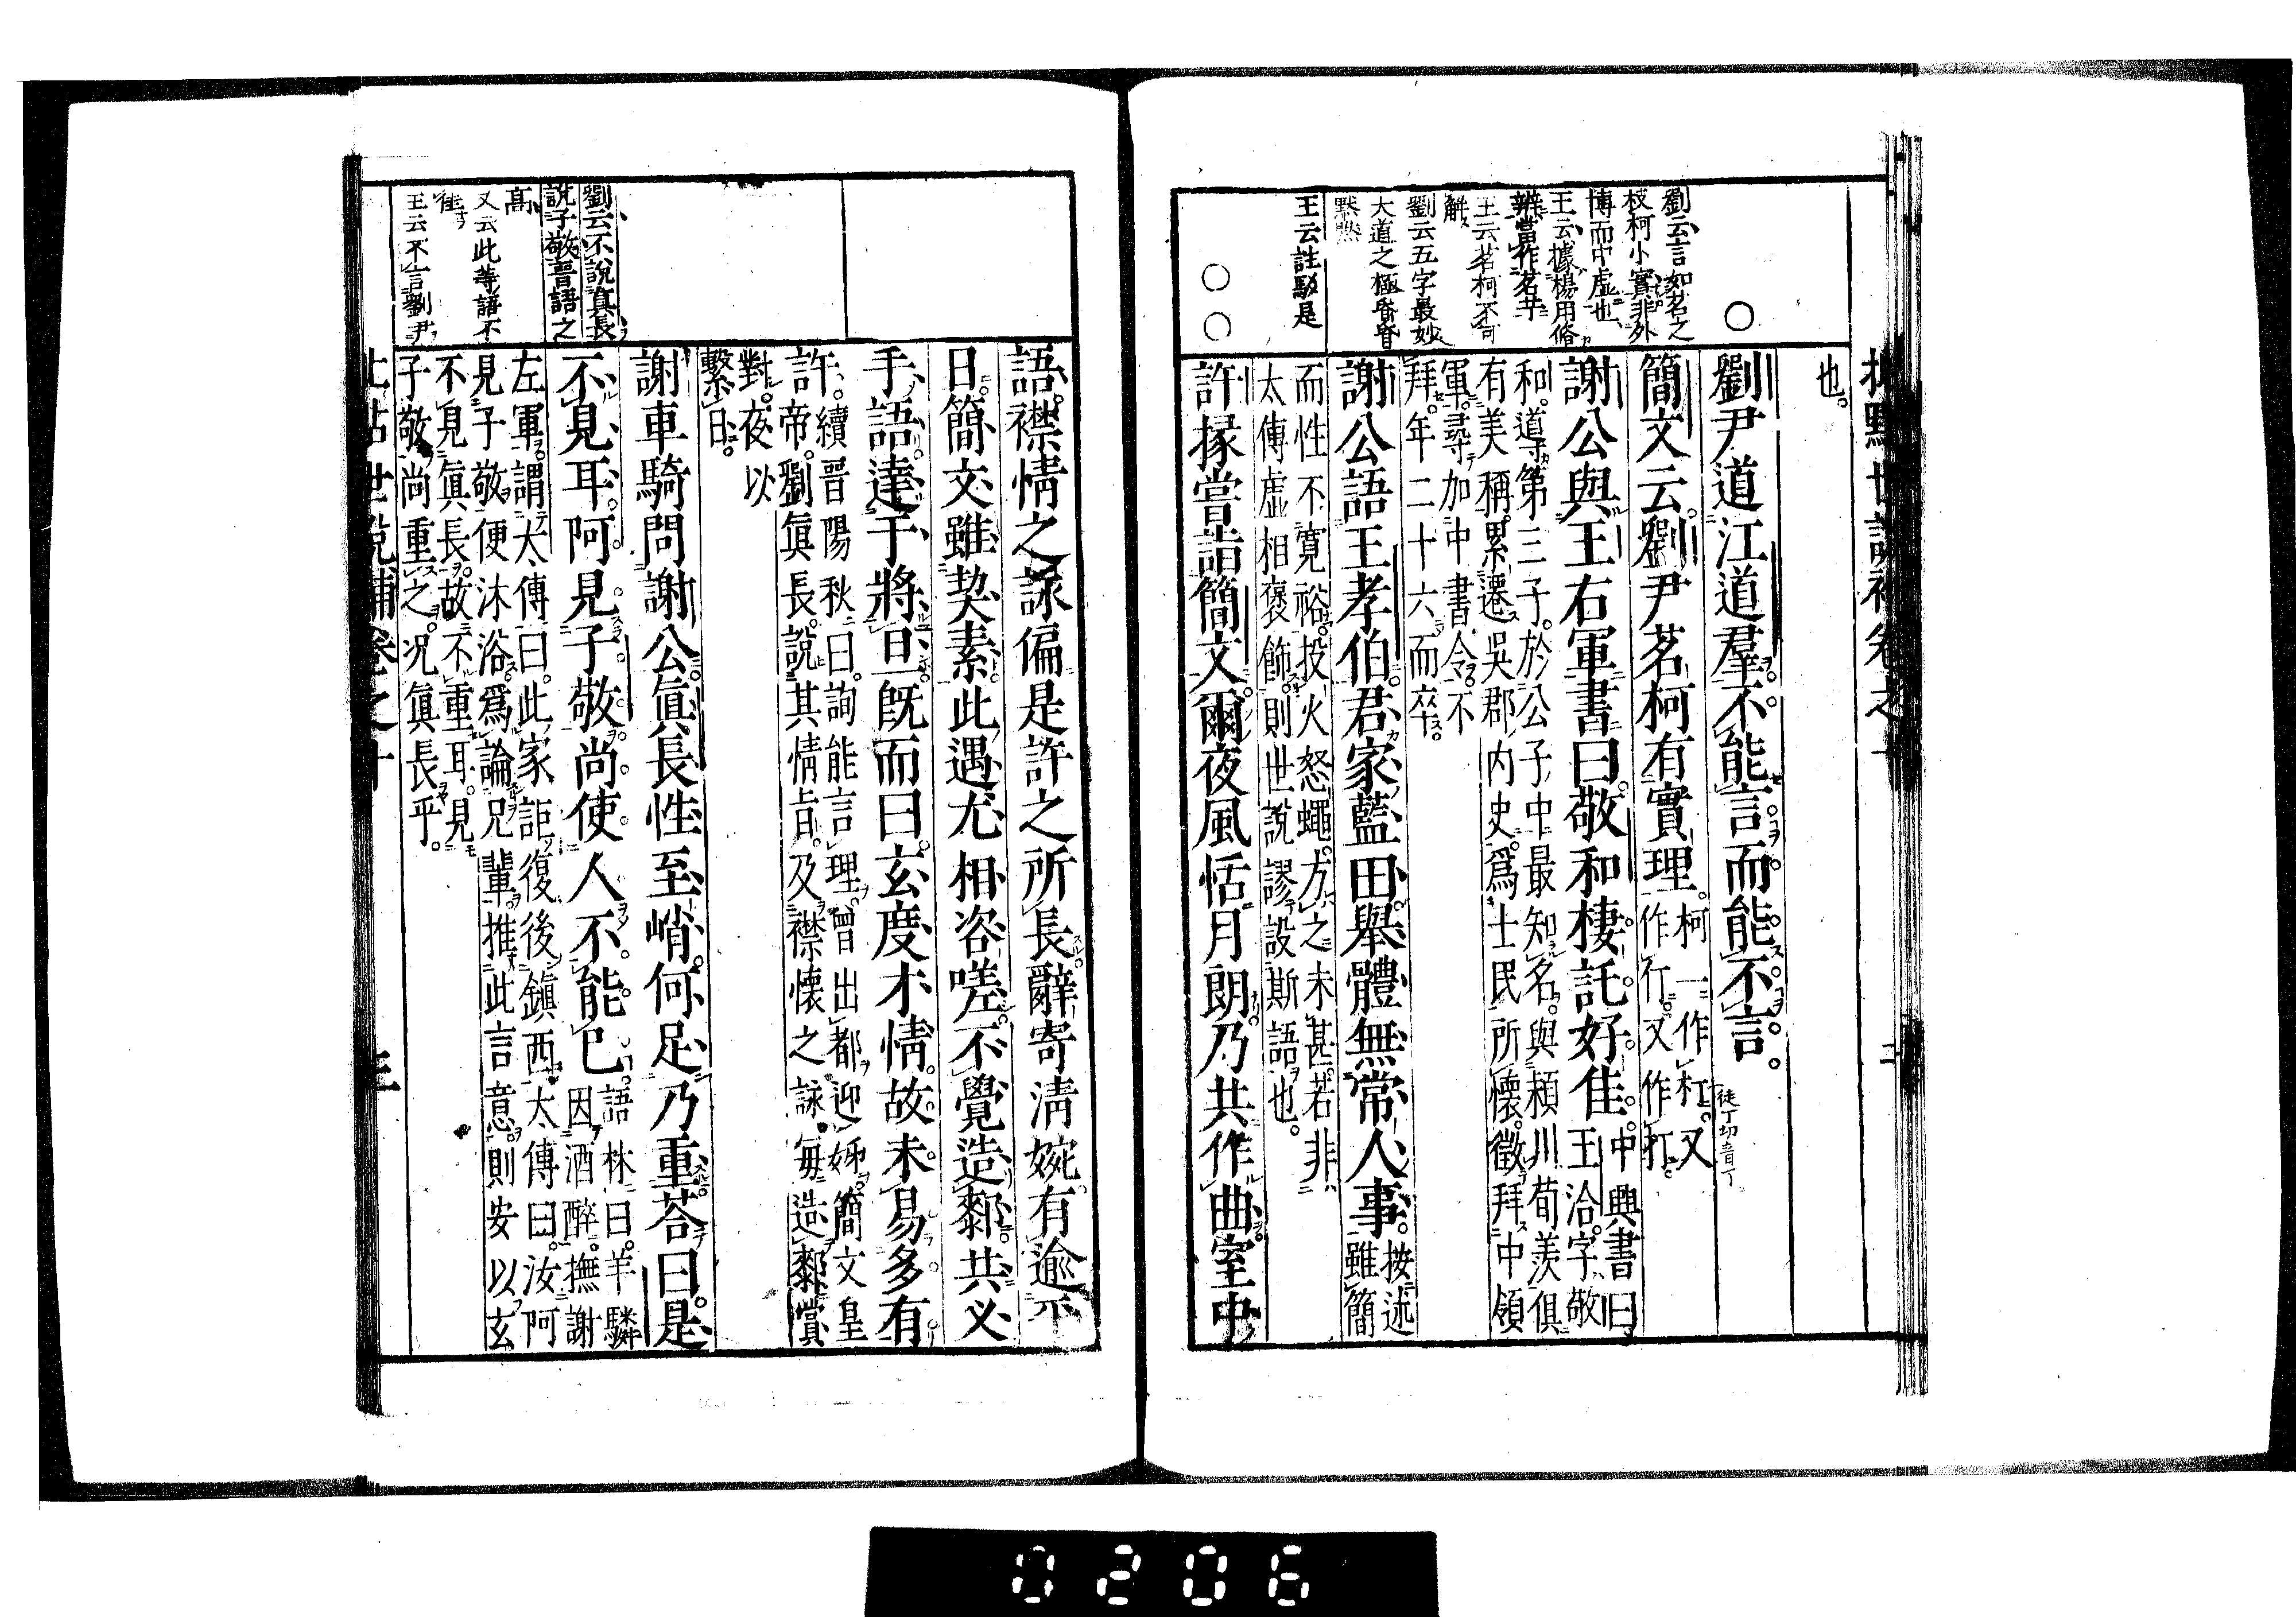 批點世說補卷之十
二
劉云言如茗之
枝柯小實非外
博而中虛也
王云據楊用脩
辨當作茗艼
王云茗柯不可
解
劉云五字最妙
大道之極昏昏
默默
王云註駁是
也。
劉尹道江道羣。不能言。而能不言。
簡文云。劉尹茗柯有實理。柯一作朾。又
作仃。又作打。
徒丁切音丁
謝公與王右軍書曰。敬和棲託好佳。中興書曰
王洽字敬
和。導第三子。於公子中最知名。與潁川荀羨俱
有美稱。累遷吳郡內史。爲士民所懷。徵拜中領
軍。尋加中書令。不
拜。年二十六而卒。
謝公語王孝伯。君家藍田。舉體無常人事。按述
雖簡
而性不寬裕。投火怒蠅。方之未甚。若非
太傅虛相褒飾。則世說謬設斯語也。
許掾嘗詣簡文。爾夜風恬月朗。乃共作曲室中
語。襟情之詠。偏是許之所長。辭寄清婉。有逾平
日。簡文雖契素。此遇尤相咨嗟。不覺造厀。共叉
手語。達于將旦。旣而曰。玄度才情。故未易多有
許。續晉陽秋曰。詢能言理。曾出都迎姊。簡文皇
帝。劉眞長。說其情旨。及襟懷之詠。每造厀賞
對。夜以
繫日。
謝車騎問謝公。眞長性至峭。何足乃重。荅曰。是
不見耳。阿見子敬。尚使人不能已。語林曰。羊驎
因酒醉。撫謝
左軍。謂太傅曰。此家詎復後鎭西。太傅曰。汝阿
見子敬。便沐浴。爲論兄輩。推此言意。則安以玄
不見眞長。故不重耳。見
子敬。尚重之。況眞長乎。
劉云不說眞長
說子敬晉語之
高
又云此等語不
佳
王云不言劉尹
批點世說補卷之十
三
0206